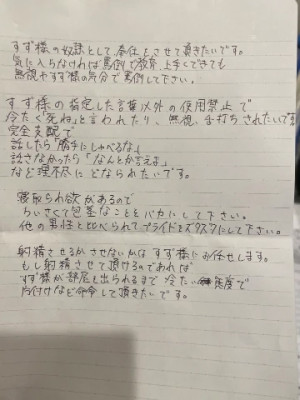 すず様の奴隷として、奉仕をさせて頂きたいです。
気に入らなければ罵倒で教育、上手くできても
無視やすず様の気分で罵倒して下さい。
すず様の指定した言葉以外の使用禁止で
冷たく「死ね」と言われたり、無視、舌打ちされたいです
完全支配で
話したら「勝手にしゃべるな」
話さなかったら「なんとか言えよ」
など理不尽にどなられたいです。
寝取られ欲があるので
ちいさくて包茎なことをバカにして下さい。
他の男性と比べられてプライドをズタズタにして下さい。
射精させるかさせないかはすず様にお任せします。
もし射精させて頂けるのであれば
すず様が部屋を出られるまで冷たい態度で
片付けなど命令して頂きたいです。